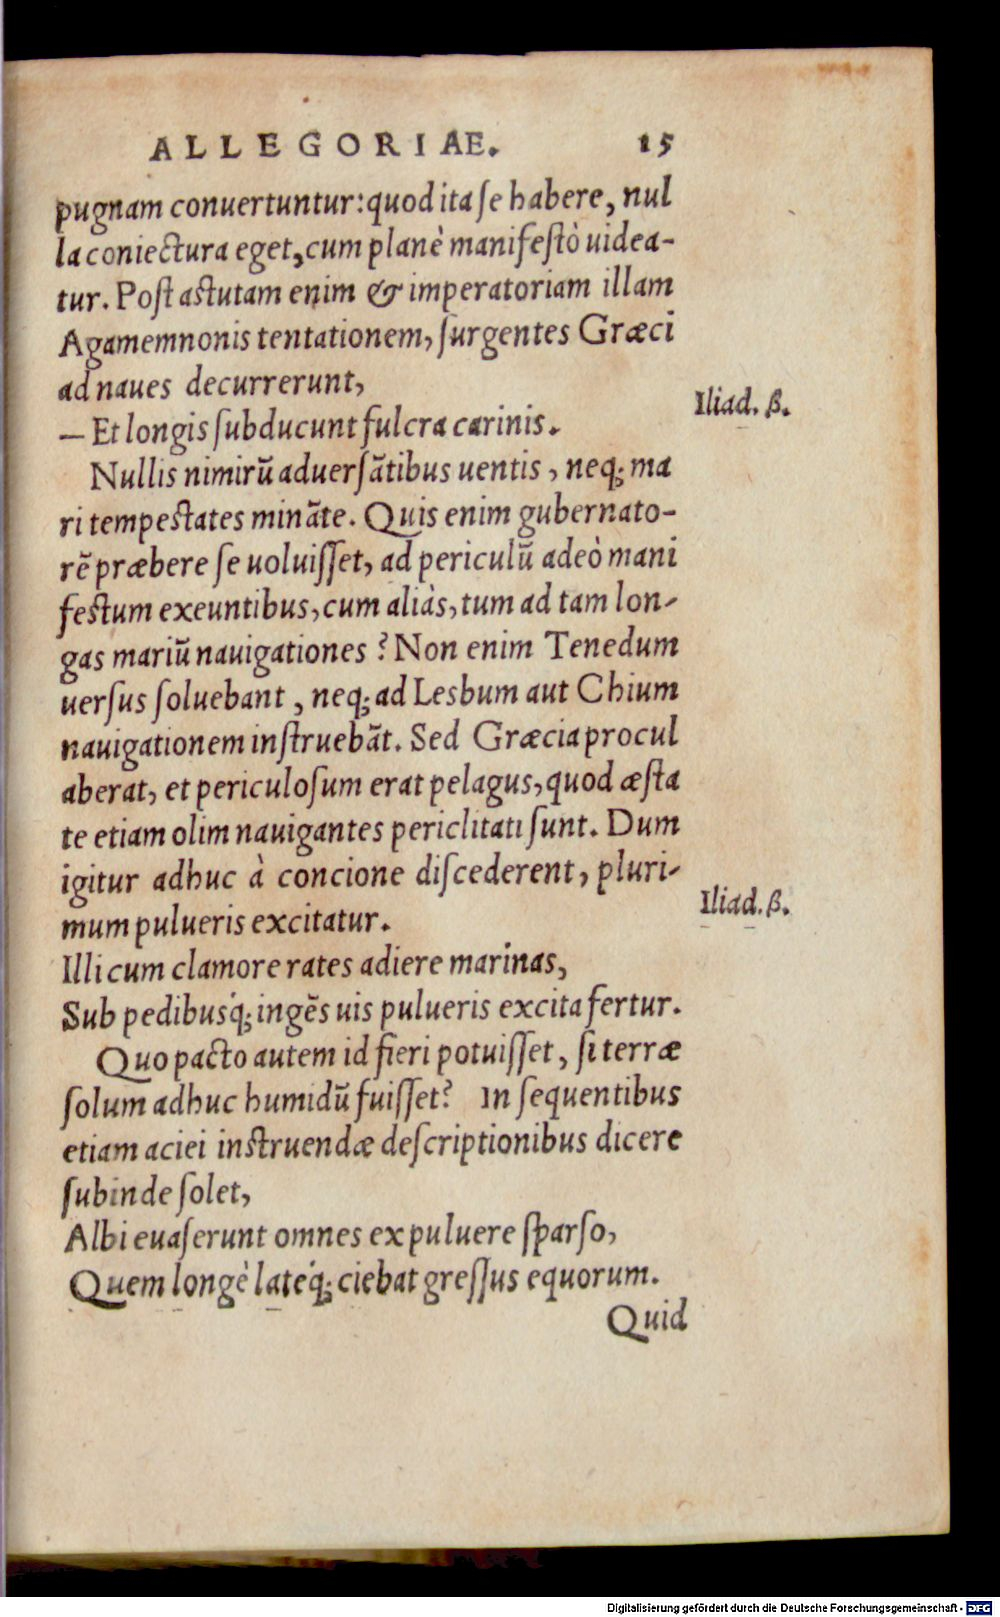 ALLEGORIAE. 15
pugnam conuertuntur: quod ita ſe habere, nul
la coniectura eget, cum planè manifeſtò uidea-
tur. Poſt astutam enim & imperatoriam illam
Agamemnonis tentationem, ſurgentes Græci
ad naues decurrerunt,
Iliad. β.
— Et longis ſubducunt fulcra carinis.
Nullis nimirū aduerſātibus uentis, neq; ma
ri tempestates mināte. Quis enim gubernato-
rē præbere ſe uoluiſſet, ad periculū adeò mani
festum exeuntibus, cum aliàs, tum ad tam lon-
gas mariū nauigationes? Non enim Tenedum
uerſus ſoluebant, neq; ad Lesbum aut Chium
nauigationem inſtruebāt. Sed Græcia procul
aberat, et periculoſum erat pelagus, quod æſta
te etiam olim nauigantes periclitati ſunt. Dum
igitur adhuc à concione diſcederent, pluri-
Iliad. β.
mum pulueris excitatur.
Illi cum clamore rates adiere marinas,
Sub pedibusq́; ingēs uis pulueris excita fertur.
Quo pacto autem id fieri potuiſſet, ſi terræ
ſolum adhuc humidū fuiſſet? In ſequentibus
etiam aciei instruendæ deſcriptionibus dicere
ſubinde ſolet,
Albi evaſerunt omnes ex puluere ſparſo,
Quem longè lateq́; ciebat greſſus equorum.
Quid
Digitalisierung gefördert durch die Deutsche Forschungsgemeinschaft - DFG